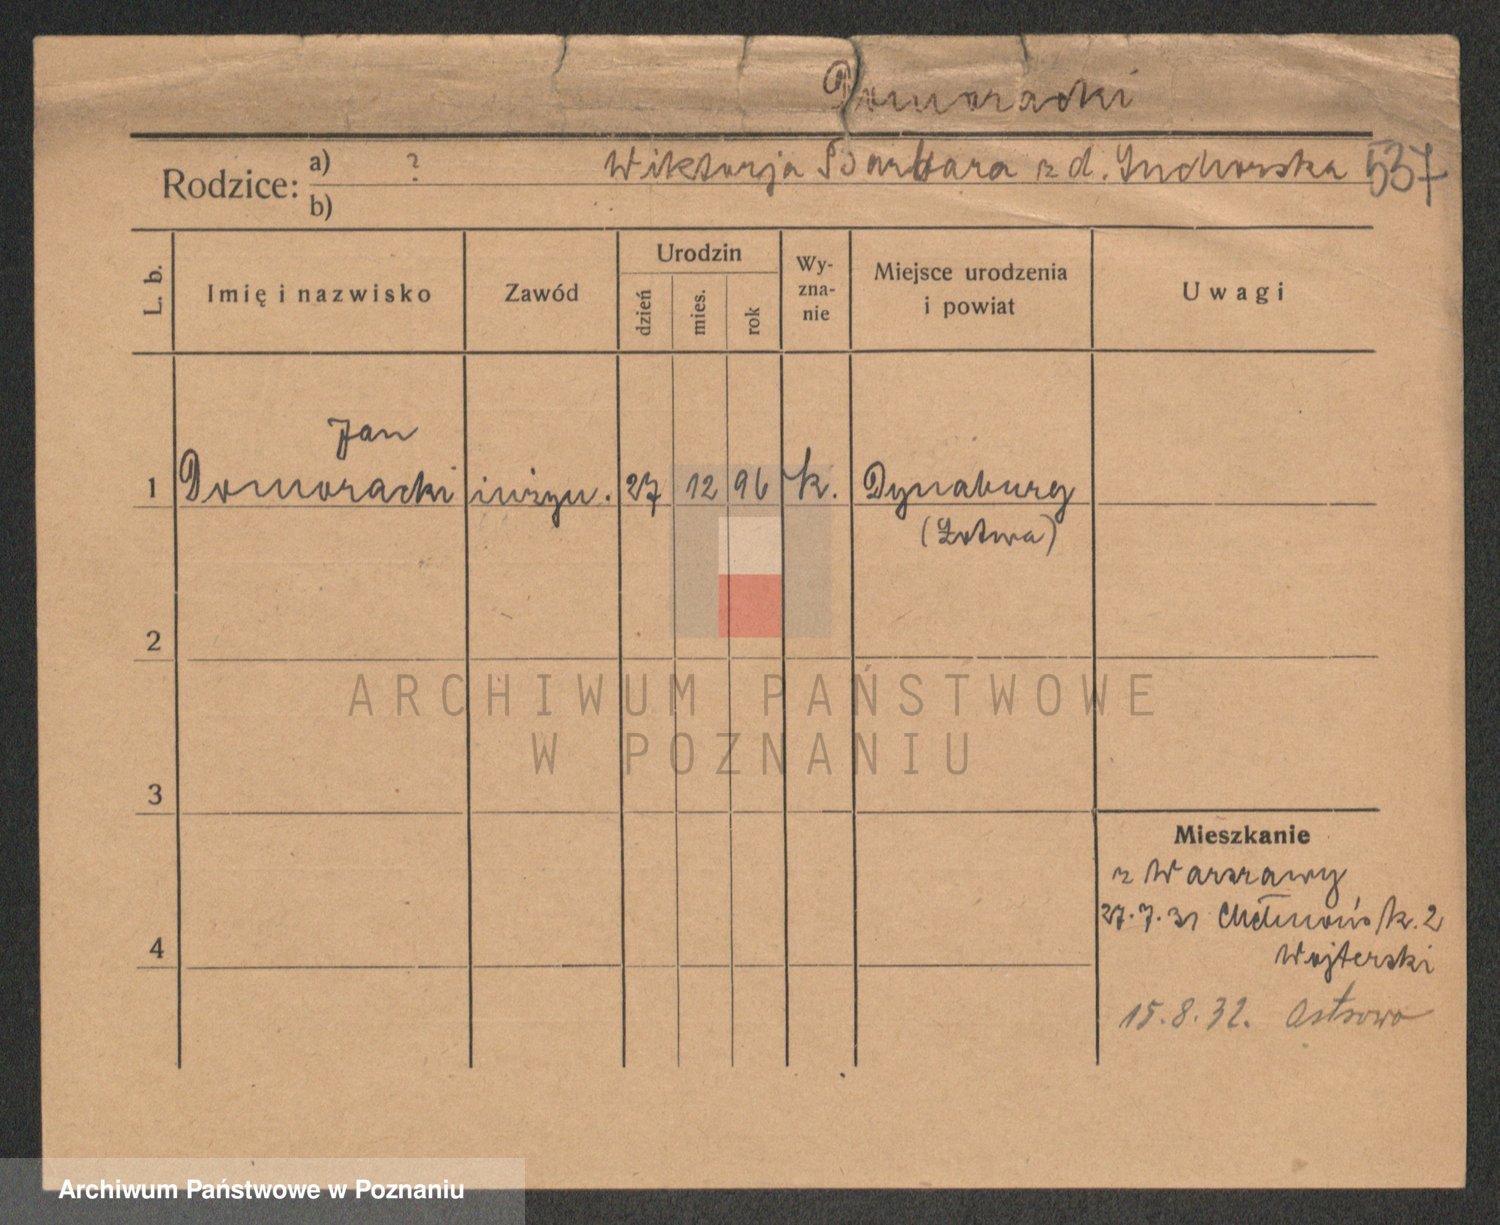 Domoracki
Rodzice: a) ? Wiktorja Barbara z d. Suchorska 537
b)
L. b. Imię i nazwisko Zawód Urodzin dzień mies. rok Wy-zna-nie Miejsce urodzenia i powiat Uwagi
Jan
1 Domoracki inżyn. 27 12 96 k. Dynaburg
(Łotwa)
2
ARCHIWUM PAŃSTWOWE
W POZNANIU
3
Mieszkanie
z Warszawy
27.7.31 Chełmońsk. 2
4 Wojterski
15.8.32.
Archiwum Państwowe w Poznaniu